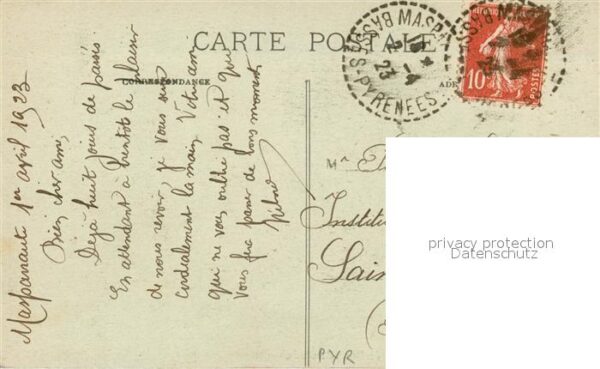 CARTE POSTALE
CORRESPONDANCE
Masparraute 1er avril 1923
Bien cher ami,
Déjà huit jours de passés
En attendant à bientôt le plaisir
de nous revoir, je vous serre
cordialement la main, Votre ami
qui ne vous oublie pas et qui
vous fera passer de bons moments
MASPA
BASSES-PYRENEES
23
10
POSTES
Mr
Institu
Sain
PYR
privacy protection
Datenschutz